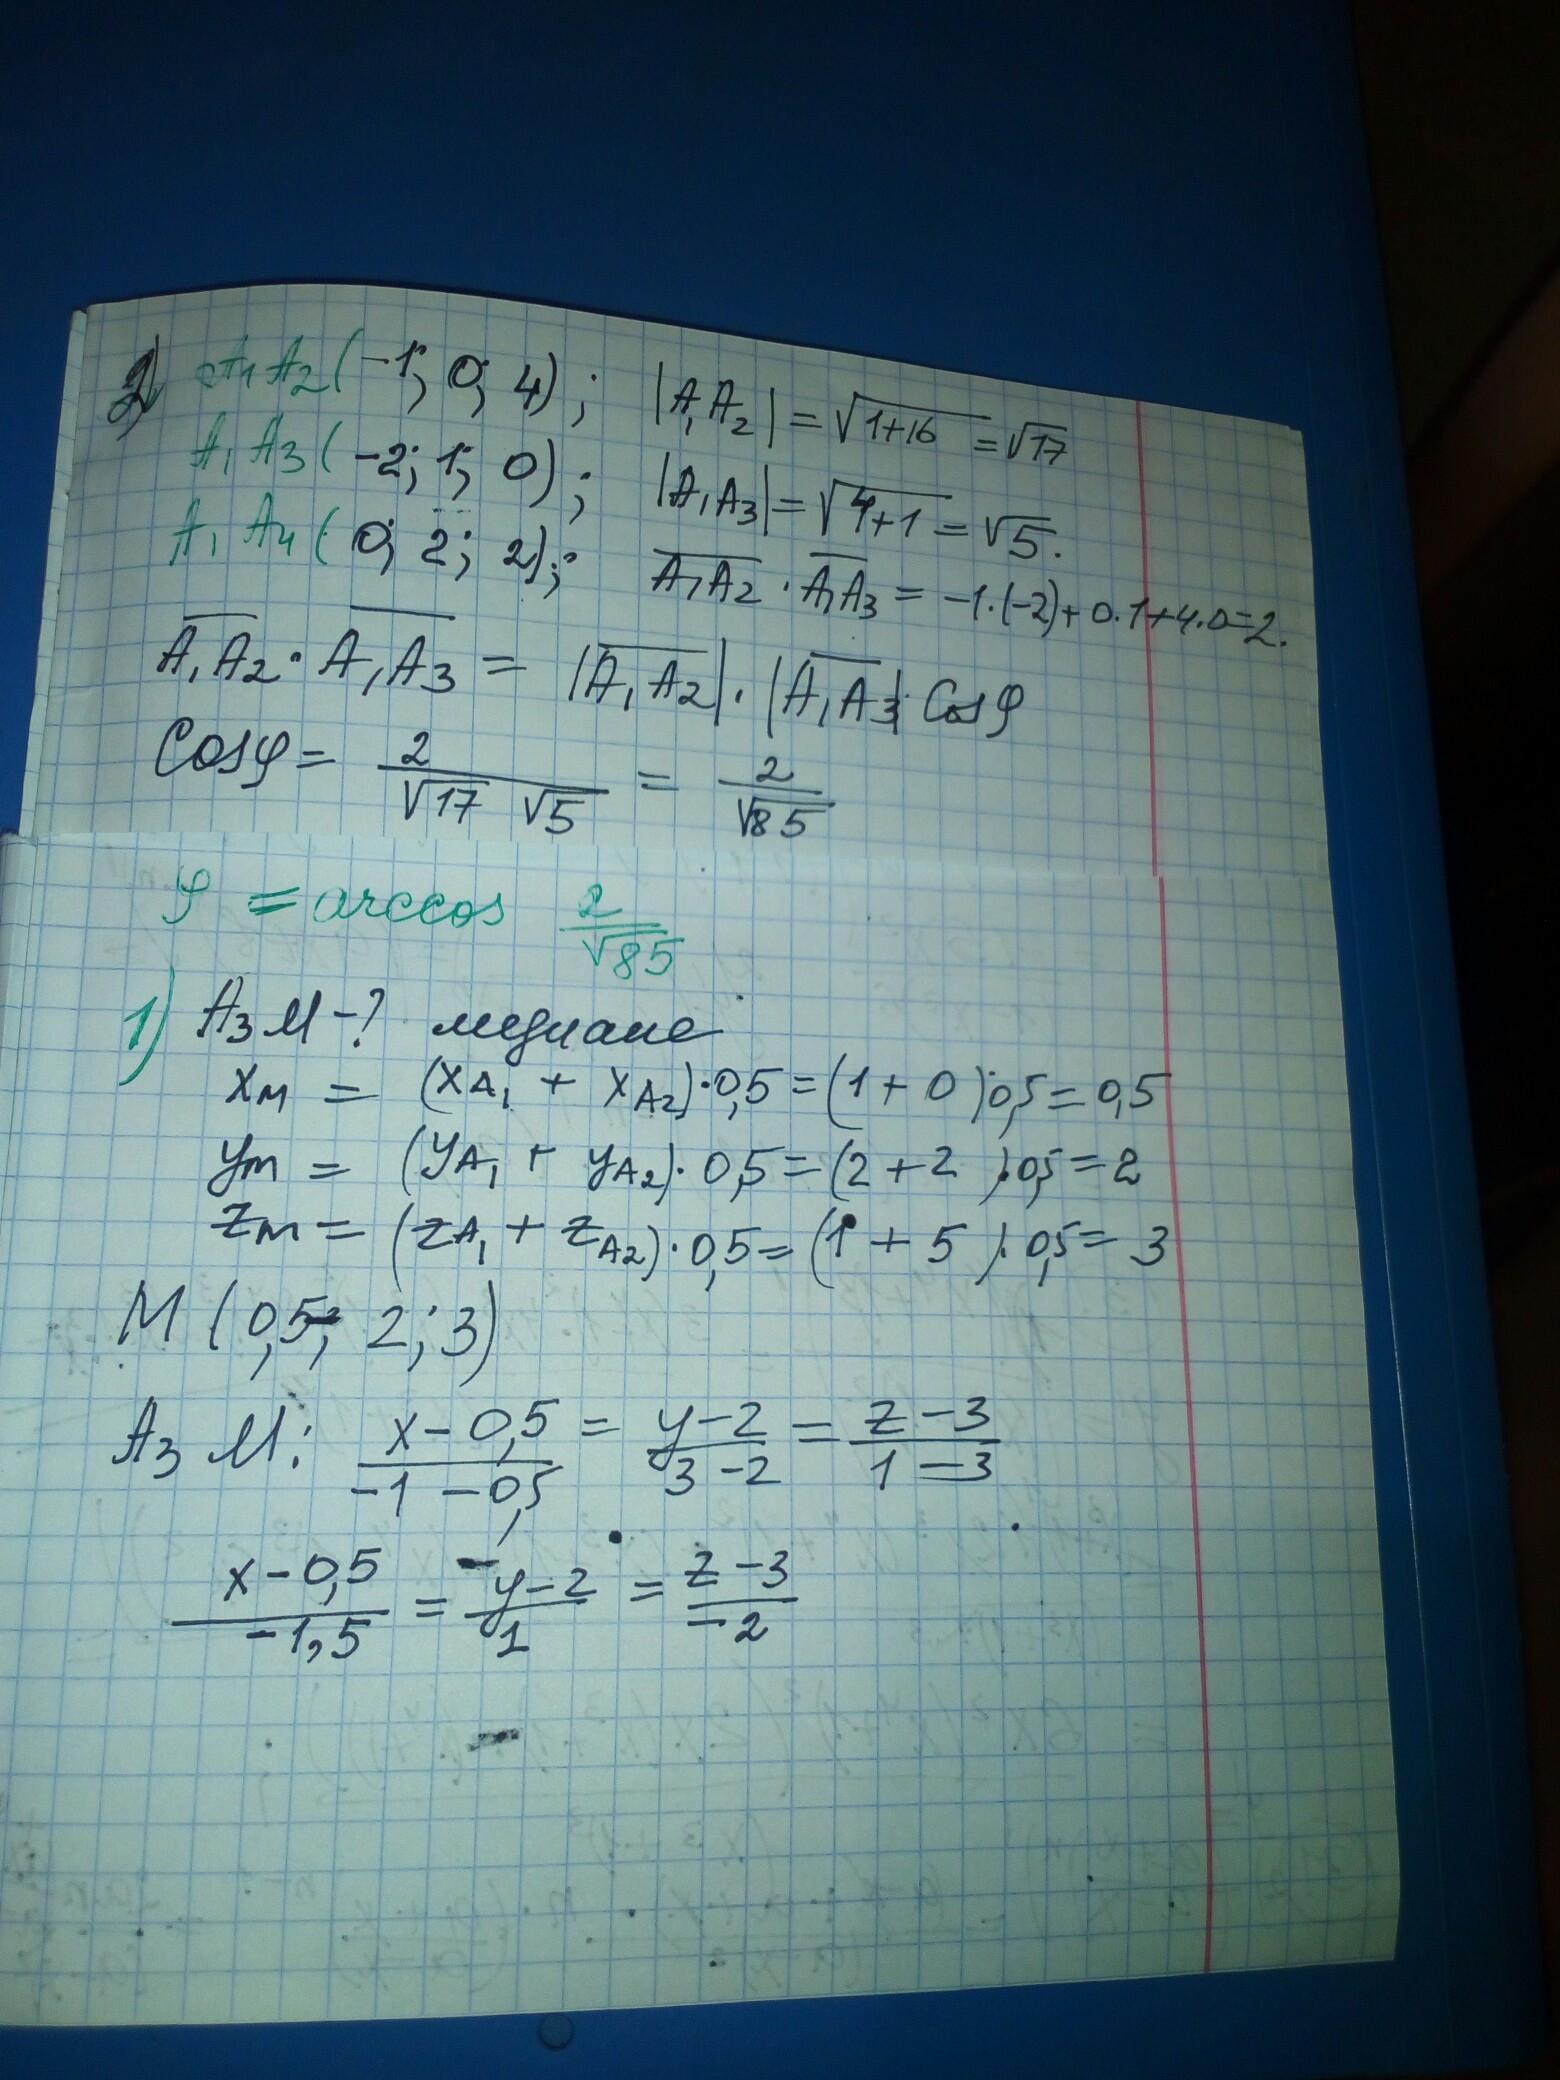 2) A₁A₂(-1; 0; 4); |A₁A₂| = √(1+16) = √17
A₁A₃(-2; 1; 0); |A₁A₃| = √(4+1) = √5.
A₁A₄(0; 2; 2); A₁A₂ · A₁A₃ = -1·(-2)+0·1+4·0=2.
A₁A₂ · A₁A₃ = |A₁A₂| · |A₁A₃| · Cosφ
Cosφ = 2/(√17 √5) = 2/√85
φ = arccos 2/√85
1) A₃M -? медиане
x_M = (x_A₁ + x_A₂)·0,5 = (1 + 0)·0,5 = 0,5
y_M = (y_A₁ + y_A₂)·0,5 = (2 + 2)·0,5 = 2
z_M = (z_A₁ + z_A₂)·0,5 = (1 + 5)·0,5 = 3
M (0,5; 2; 3)
A₃M: (x-0,5)/(-1-0,5) = (y-2)/(3-2) = (z-3)/(1-3)
(x-0,5)/(-1,5) = (y-2)/1 = (z-3)/(-2)